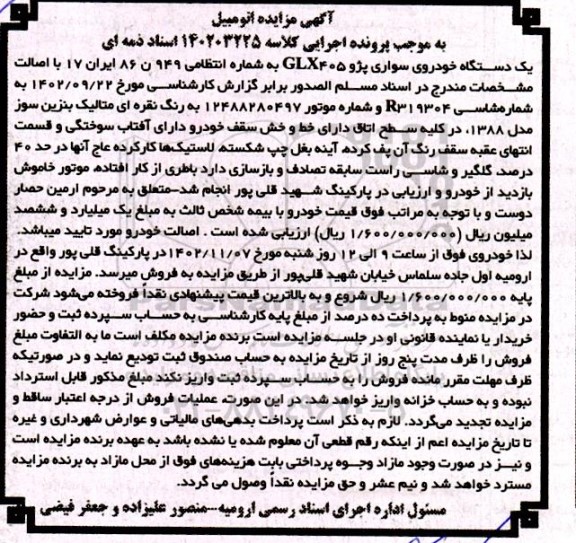 آگهی مزایده اتومبیل
به موجب پرونده اجرایی کلاسه ۱۴۰۲۰۳۲۲۵ اسناد ذمه ای
یک دستگاه خودروی سواری پژو GLX۴۰۵ به شماره انتظامی ۹۴۹ ن ۸۶ ایران ۱۷ با اصالت
مشخصات مندرج در اسناد مسلم الصدور برابر گزارش کارشناسی مورخ ۱۴۰۲/۰۹/۲۲ به
شماره شاسی R۳۱۹۳۰۴ و شماره موتور ۱۲۴۸۸۲۸۰۴۹۷ به رنگ نقره ای متالیک بنزین سوز
مدل ۱۳۸۸، در کلیه سطح اتاق دارای خط و خش سقف خودرو دارای آفتاب سوختگی و قسمت
انتهای عقبه سقف رنگ آن پف کرده، آینه بغل چپ شکسته، لاستیک‌ها کارکرده عاج آنها در حد ۴۰
درصد، گلگیر و شاسی راست سابقه تصادف و بازسازی دارد باطری از کار افتاده، موتور خاموش
بازدید از خودرو و ارزیابی در پارکینگ شهید قلی پور انجام شد-متعلق به مرحوم ارمین حصار
دوست و با توجه به مراتب فوق قیمت خودرو با بیمه شخص ثالث به مبلغ یک میلیارد و ششصد
میلیون ریال (۱/۶۰۰/۰۰۰/۰۰۰ ریال) ارزیابی شده است . اصالت خودرو مورد تایید میباشد.
لذا خودروی فوق از ساعت ۹ الی ۱۲ روز شنبه مورخ ۱۴۰۲/۱۱/۰۷ در پارکینگ قلی پور واقع در
ارومیه اول جاده سلماس خیابان شهید قلی‌پور از طریق مزایده به فروش میرسد. مزایده از مبلغ
پایه ۱/۶۰۰/۰۰۰/۰۰۰ ریال شروع و به بالاترین قیمت پیشنهادی نقداً فروخته می‌شود شرکت
در مزایده منوط به پرداخت ده درصد از مبلغ پایه کارشناسی به حساب سپرده ثبت و حضور
خریدار یا نماینده قانونی او در جلسه مزایده است برنده مزایده مکلف است ما به التفاوت مبلغ
فروش را ظرف مدت پنج روز از تاریخ مزایده به حساب صندوق ثبت تودیع نماید و در صورتیکه
ظرف مهلت مقرر مانده فروش را به حساب سپرده ثبت واریز نکند مبلغ مذکور قابل استرداد
نبوده و به حساب خزانه واریز خواهد شد، در این صورت، عملیات فروش از درجه اعتبار ساقط و
مزایده تجدید می‌گردد. لازم به ذکر است پرداخت بدهی‌های مالیاتی و عوارض شهرداری و غیره
تا تاریخ مزایده اعم از اینکه رقم قطعی آن معلوم شده یا نشده باشد به عهده برنده مزایده است
و نیز در صورت وجود مازاد وجوه پرداختی بابت هزینه‌های فوق از محل مازاد به برنده مزایده
مسترد خواهد شد و نیم عشر و حق مزایده نقداً وصول می گردد.
مسئول اداره اجرای اسناد رسمی ارومیه---منصور علیزاده و جعفر فیضی